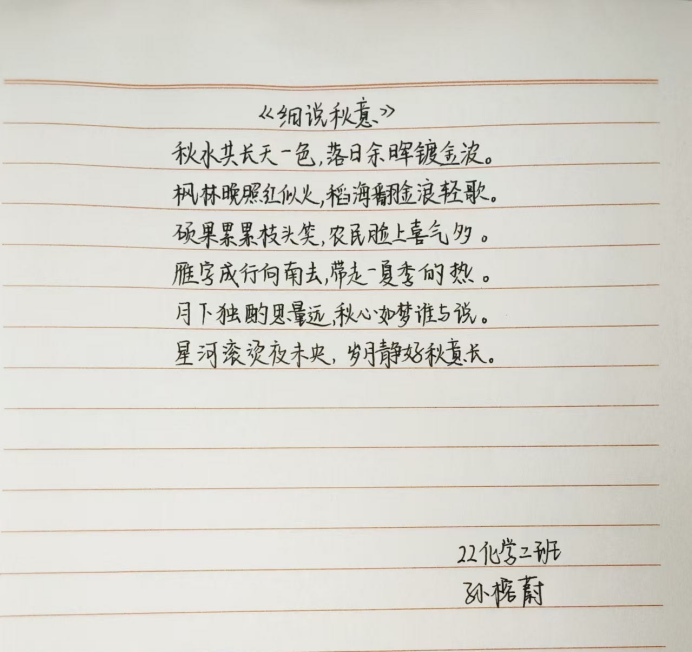 《细说秋意》
秋水共长天一色，落日余晖镀金波。
枫林晚照红似火，稻海翻金浪轻歌。
硕果累累枝头笑，农民脸上喜气多。
雁字成行向南去，带走一夏季的热。
月下独酌思量远，秋心如梦谁与说。
星河滚烫夜未央，岁月静好秋意长。
22化学二班
孙榕蔚